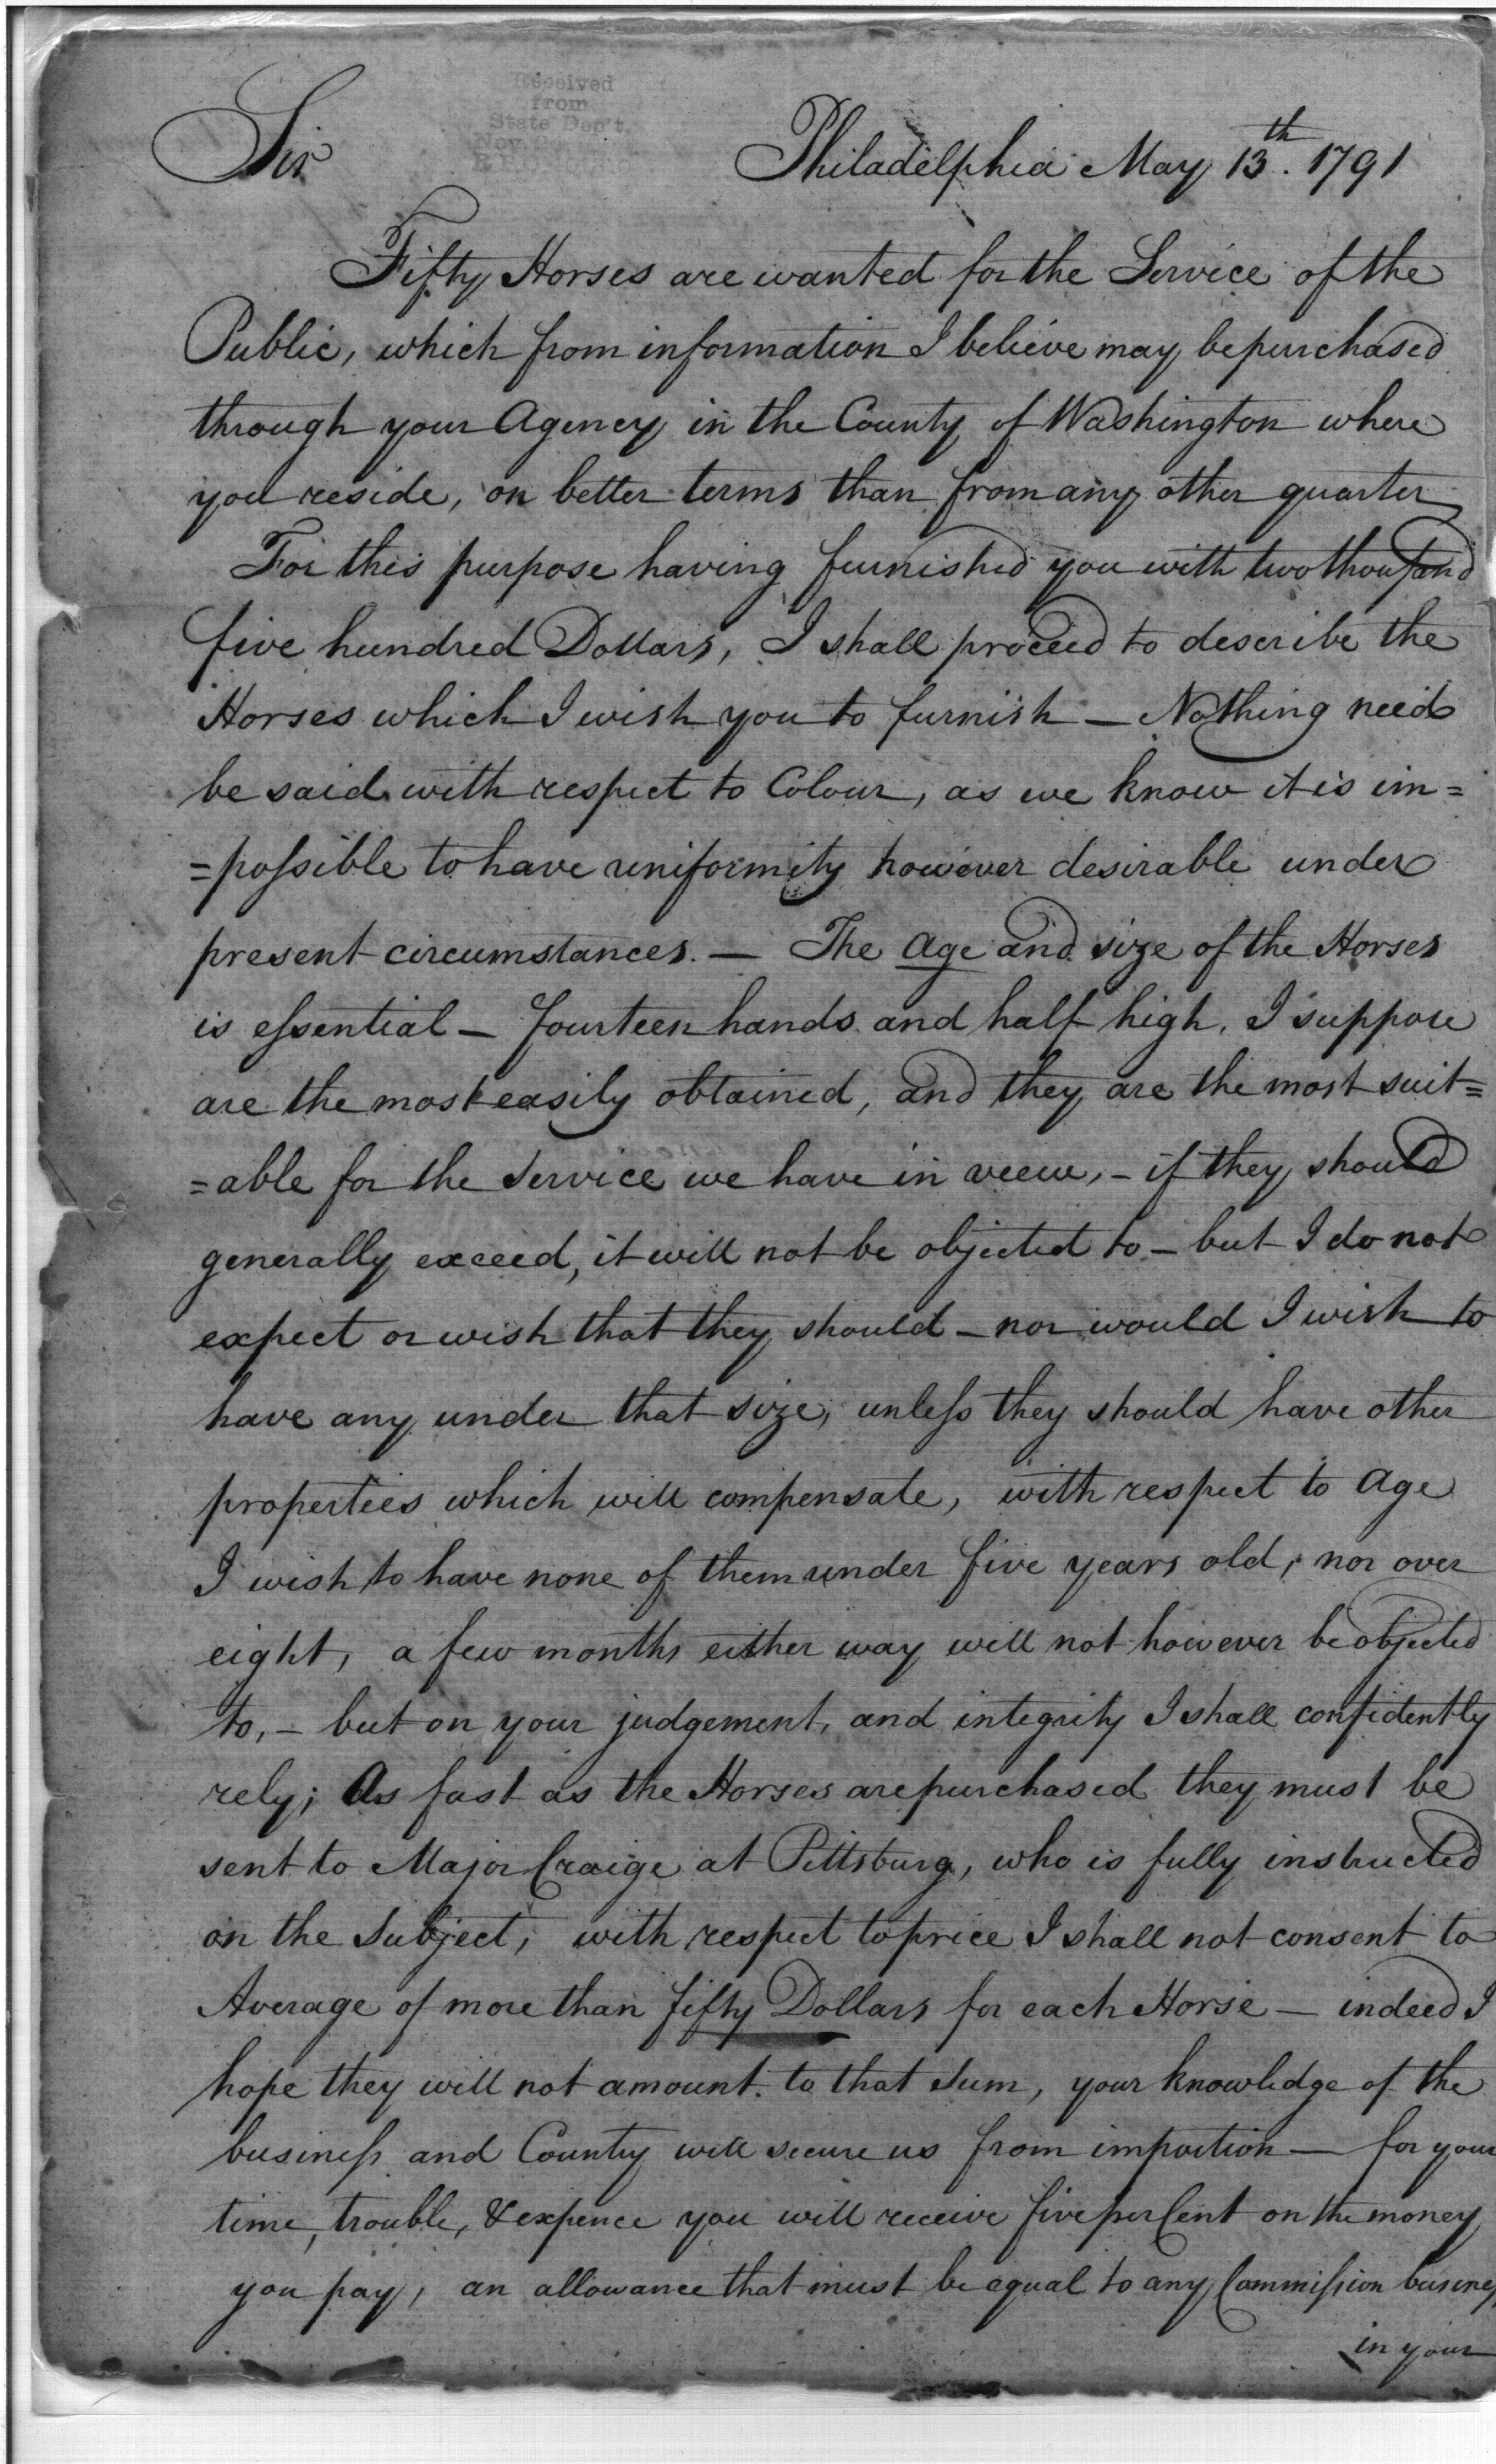 Received
from
State Dep't.
Nov.
Sir
Philadelphia May 13th. 1791
Fifty Horses are wanted for the Service of the
Public, which from information I believe may be purchased
through your Agency in the County of Washington where
you reside, on better terms than from any other quarter
For this purpose having furnished you with two thousand
five hundred Dollars, I shall proceed to describe the
Horses which I wish you to furnish — Nothing need
be said with respect to Colour, as we know it is im=
=possible to have uniformity however desirable under
present circumstances. — The Age and size of the Horses
is essential — fourteen hands and half high, I suppose
are the most easily obtained, and they are the most suit=
=able for the Service we have in veew, — if they should
generally exceed, it will not be objected to — but I do not
expect or wish that they should — nor would I wish to
have any under that size, unless they should have other
properties which will compensate, with respect to Age
I wish to have none of them under five years old, nor over
eight, a few months either way will not however be objected
to, — but on your judgement, and integrity I shall confidently
rely; As fast as the Horses are purchased they must be
sent to Major Craige at Pittsburg, who is fully instructed
on the Subject, with respect to price I shall not consent to
Average of more than fifty Dollars for each Horse — indeed I
hope they will not amount to that Sum, your knowledge of the
business and County will secure us from impostion — for your
time, trouble, & expence you will receive five per Cent on the money
you pay, an allowance that must be equal to any Commission busines
in your